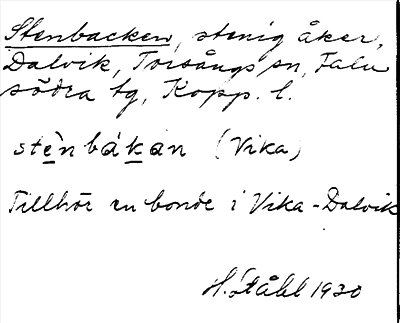 Stenbacken, stenig åker,
Dalvik, Torsångs sn, Falu
södra tg, Kopp. l.
stè̱nbák̲an (Vika)
Tillhör en bonde i Vika-Dalvik
H. Ståhl 1930